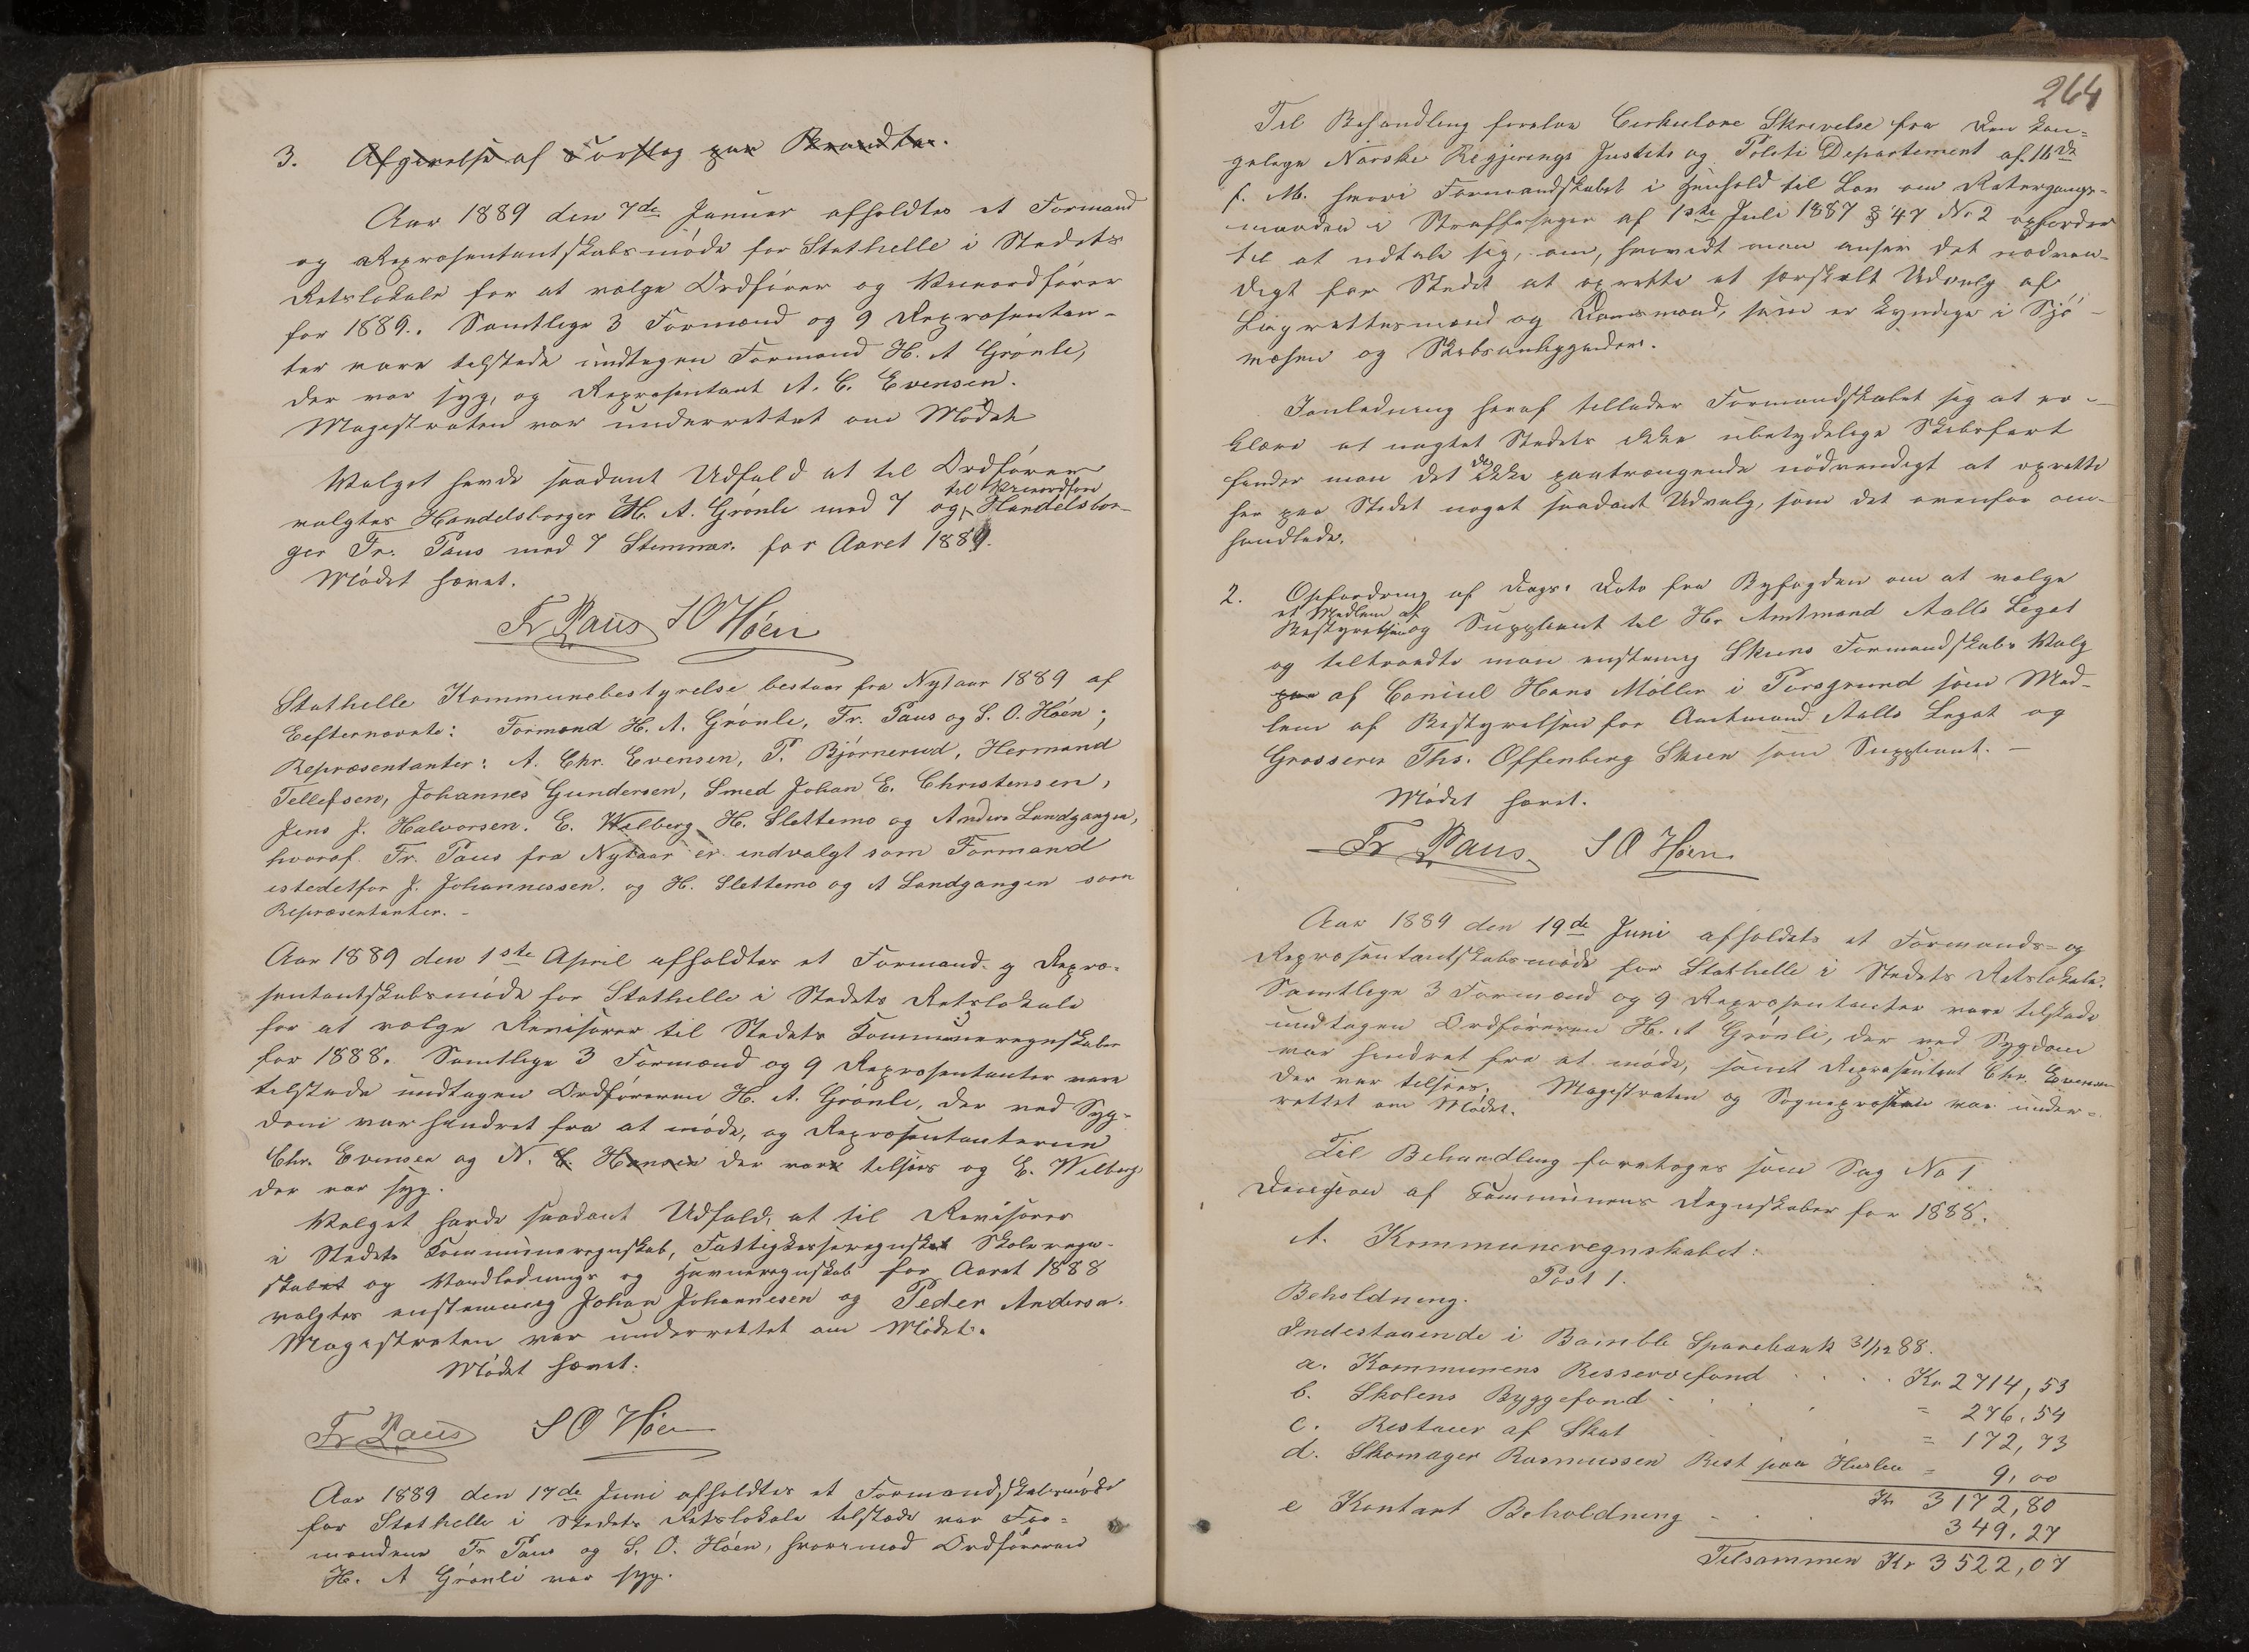 3. Afgivelse af Forslag paa Brandta.
Aar 1889 den 7de Januar afholdtes et Formand
og Repræsentantskabsmøde for Stathelle i Stedets
Retslokale for at vælge Ordfører og Viceordfører
for 1889. Samtlige 3 Formænd og 9 Repræsentan-
ter vare tilstede undtagen Formand H. A Grønli,
der var syg, og Repræsentant A. C. Evensen.
Magistraten var underrettet om Mødet
Valget havde saadant Udfald at til Ordfører
valgtes Handelsborger H. A. Grønli med 7 og til Viceordfører Handelsbor-
ger Fr. Paus med 7 Stemmer. for Aaret 1889.
Mødet hævet.
Fr Paus S O Høen
Stathelle Kommunebestyrelse bestaar fra Nytaar 1889 af
Eefternævnte: Formænd H. A. Grønle, Fr. Paus og S. O. Høen;
Repræsentanter: A. Chr. Evensen, P. Bjørnerud, Hermand
Tellefsen, Johannes Gundersen, Smed Johan E. Christensen,
Jens J. Halvorsen. E. Wilberg H. Slettemo og Anders Landgangen,
hvoraf Fr. Paus fra Nytaar er indvalgt som Formand
istedetfor J. Johannessen. og H. Slettemo og A Landgangen som
Repræsentanter. -
Aar 1889 den 1ste April afholdtes et Formand- og Repræ-
sentantskabsmøde for Stathelle i Stedets Retslokale
for at vælge Revisorer til Stedets Kommuneregnskaber
for 1888. Samtlige 3 Formænd og 9 Repræsentanter vare
tilstede undtagen Ordføreren H. A. Grønli, der ved Syg-
dom var hindret fra at møde, og Repræsentanterne
Chr. Evensen og N. C. Hansen der vare tilsjøs og E. Wilberg
der var syg.
Valget havde saadant Udfald, at til Revisorer
i Stedets Kommuneregnskab, Fattigkasseregnskab Skoleregn-
skabet og Vandlednings og Havneregnskab for Aaret 1888
valgtes enstemmig Johan Johannesen og Peder Anderse.
Magistraten var underrettet om Mødet.
Mødet hævet.
Fr Paus S O Høen
Aar 1889 den 17de Juni afholdtes et Formandskabsmøde
for Stathelle i Stedets Retslokale tilstede var For-
mændene Fr Paus og S. O. Høen, hvorimod Ordføreren
H. A Grønli var syg.
264
Til Behandling forelaa Cirkulære Skrivelse fra den kon-
gelige Norske Regjerings Justits og Politi Departement af 11de
f. M. hvori Formandskabet i Henhold til Lov om Rettergangs-
maaden i Straffesager af 1ste Juli 1887 § 47 No 2 opfordres
til at udtale sig, om, hvorvidt man anser det nødven-
digt for Stedet at oprette et særskilt Udvalg af
Lagrettesmænd og Domsmænd, som er kyndige i Sjø-
væsen og Skibsanliggender.
I anledning heraf tillader Formandskabet sig at er-
klære at uagtet Stedets ikke ubetydelige Skibsfart
finder man det dog ikke paatrængende nødvendigt at oprette
her paa Stedet noget saadant Udvalg, som det ovenfor om-
handlede.
2. Opfordring af Dags. Dato fra Byfogden om at vælge
et Medlem af
Bestyrelsen og Suppleant til Hr Amtmand Aalls Legat
og tiltraadte man enstemmig Skiens Formandskabs Valg
paa af Consul Hans Møller i Porsgrund som Med-
lem af Bestyrelsen for Amtmand Aalls Legat og
Grosserer Ths. Offenberg Skien som Suppleant. -
Mødet hævet.
Fr Paus S O Høen
Aar 1889 den 19de Juni afholdtes et Formands- og
Repræsentantskabsmøde for Stathelle i Stedets Retslokale.
Samtlige 3 Formænd og 9 Repræsentanter vare tilstede
undtagen Ordføreren H. A Grønli, der ved Sygdom
var hindret fra at møde, samt Repræsentant Chr. Evensen
der var tilsjøs. Magistraten og Sognepræsten var under-
rettet om Mødet.
Til Behandling foretoges som Sag No 1.
Decision af Kommunens Regnskaber for 1888.
A. Kommuneregnskabet:
Post 1.
Beholdning.
Indestaaende i Bamble Sparebank 31/12 88.
a. Kommunens Resservefond . . . . Kr 2714,53
b. Skolens Byggefond . . . . = 276,54
c. Restaner af Skat = 172,73
d. Skomager Rasmussen Rest paa Husleie = 9,00
Kr 3172,80
e Kontant Beholdning . . . 349,27
Tilsammen Kr 3522,07